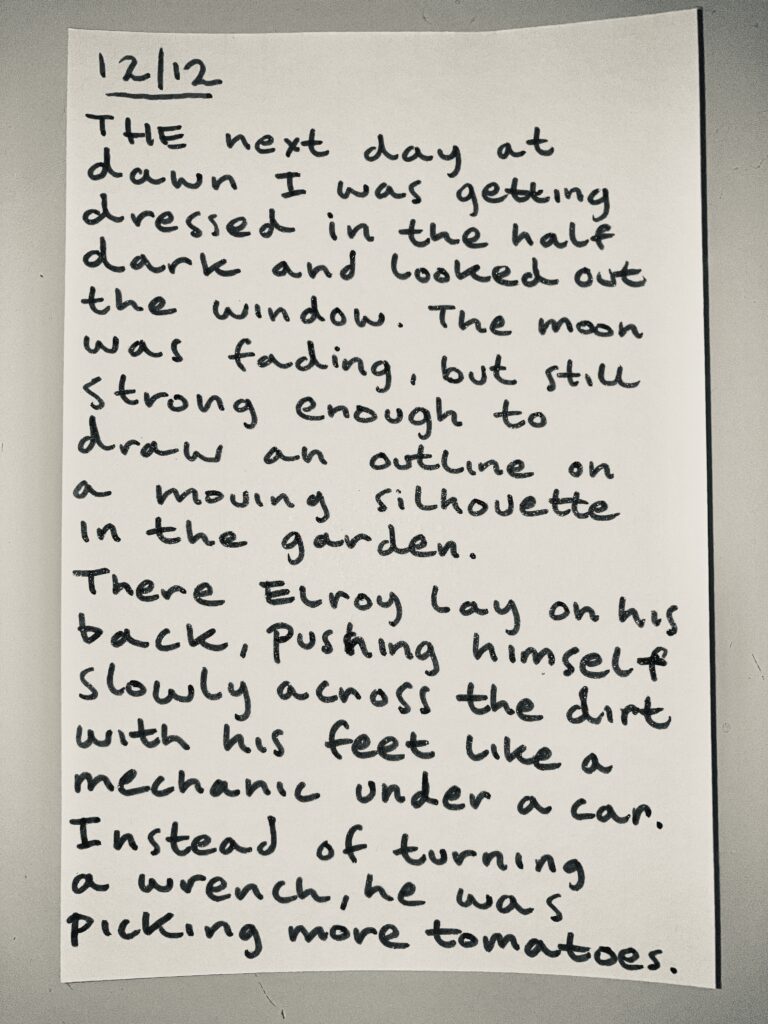 12/12
THE next day at
dawn I was getting
dressed in the half
dark and looked out
the window. The moon
was fading, but still
strong enough to
draw an outline on
a moving silhouette
in the garden.
There Elroy lay on his
back, pushing himself
slowly across the dirt
with his feet like a
mechanic under a car.
Instead of turning
a wrench, he was
picking more tomatoes.